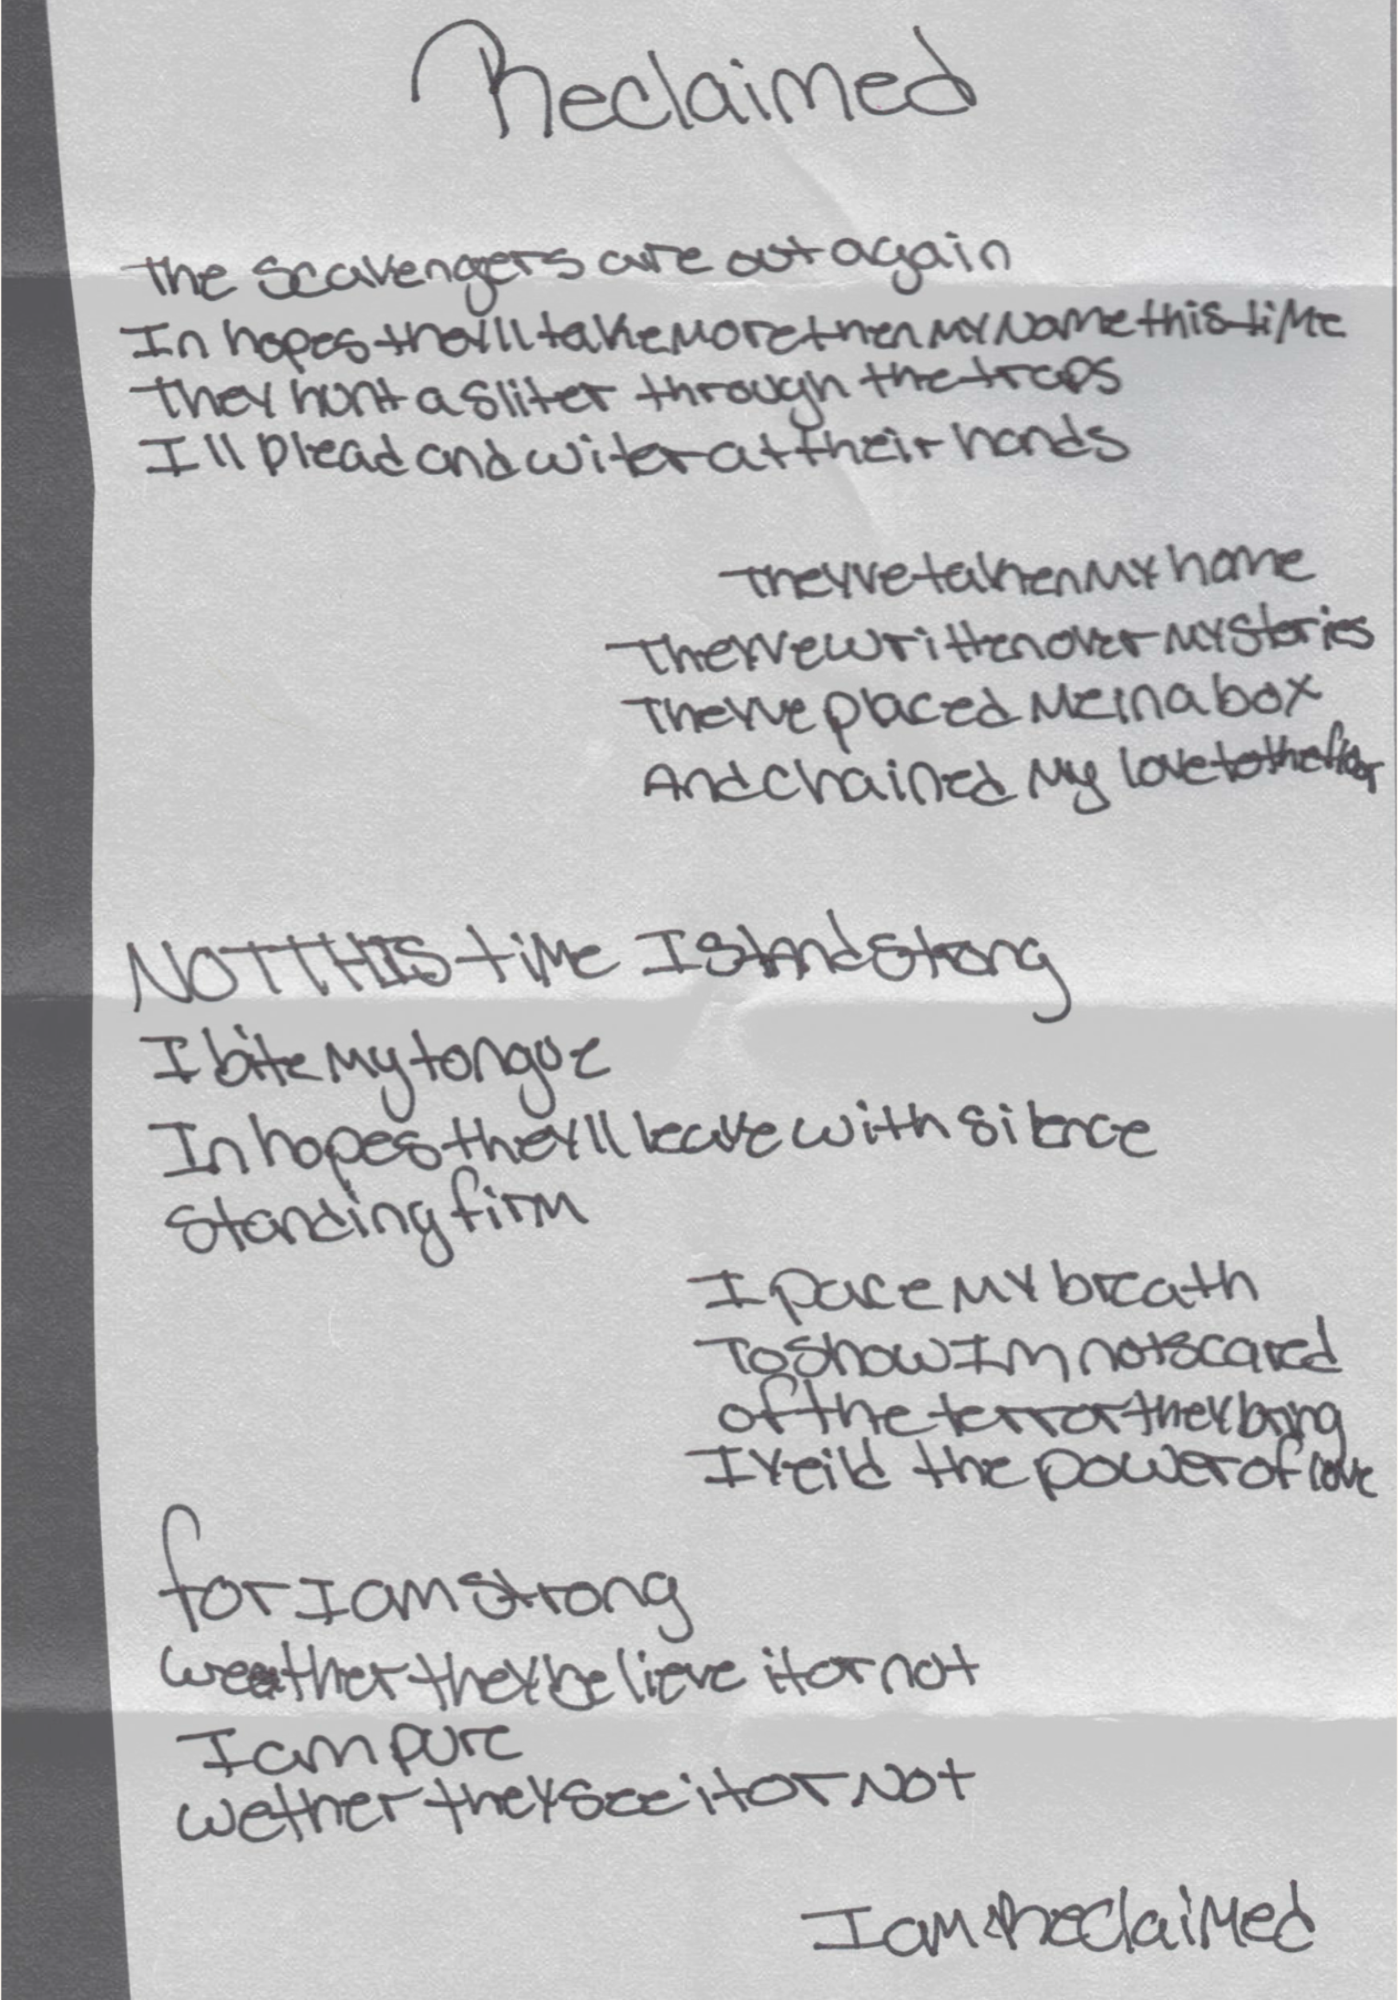 Reclaimed
The Scavengers are out again
In hopes they'll take more then my name this time
They hunt a sliter through the traps
I'll plead and witer at their hands
They've taken my home
They've written over my stories
They've placed me in a box
And chained my love to the floor
NOT THIS time I stand strong
I bite my tongue
In hopes they'll leave with silence
Standing firm
I pace my breath
To show Im not scared
of the terror they bring
I yeild the power of love
for I am strong
weather they believe it or not
I am pure
wether they see it or not
I am Reclaimed